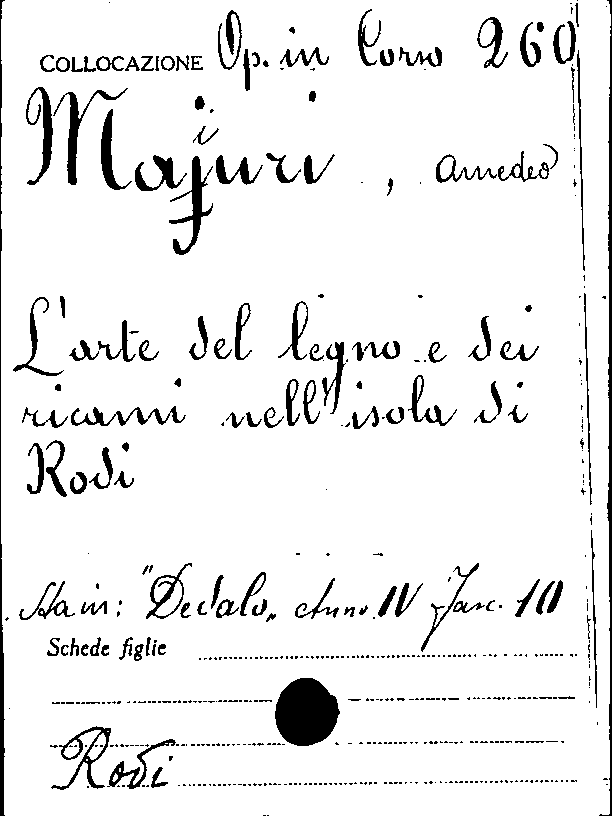 COLLOCAZIONE Op. in Corso 260
Majuri, Amedeo
L'arte del legno e dei
ricami nell'isola di
Rodi
Sta in: "Dedalo„ Anno IV Fasc. 10
Schede figlie
Rodi